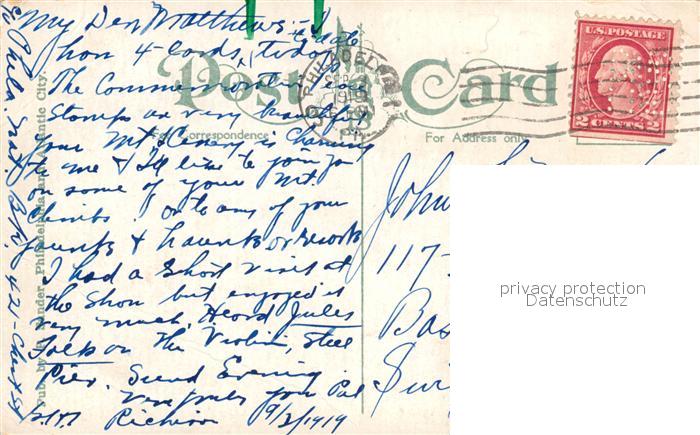 My Dear Matthews:- I
4 cards, today
The Commemorative
Stamps are very beautiful
your Mt. Scenery is charming
to me & I'd like to join you
on some of your Mt.
Climbs! or to any of your
jaunts & haunts or resorts
I had a short visit at
the Shore but enjoyed it
very much. Heard Jules
Falk on the Violin, Steel
Pier. Sunday Evening
your Pal
9/3/1919
Phila Natl Bk. 421-Chestnut St
Post Card
For Correspondence
For Address only
Philadelphia and Atlantic City.
PHILADELPHIA
SEP
1919
PA.
U.S. POSTAGE
2 CENTS 2
John
117-
Bas
Swi
privacy protection
Datenschutz